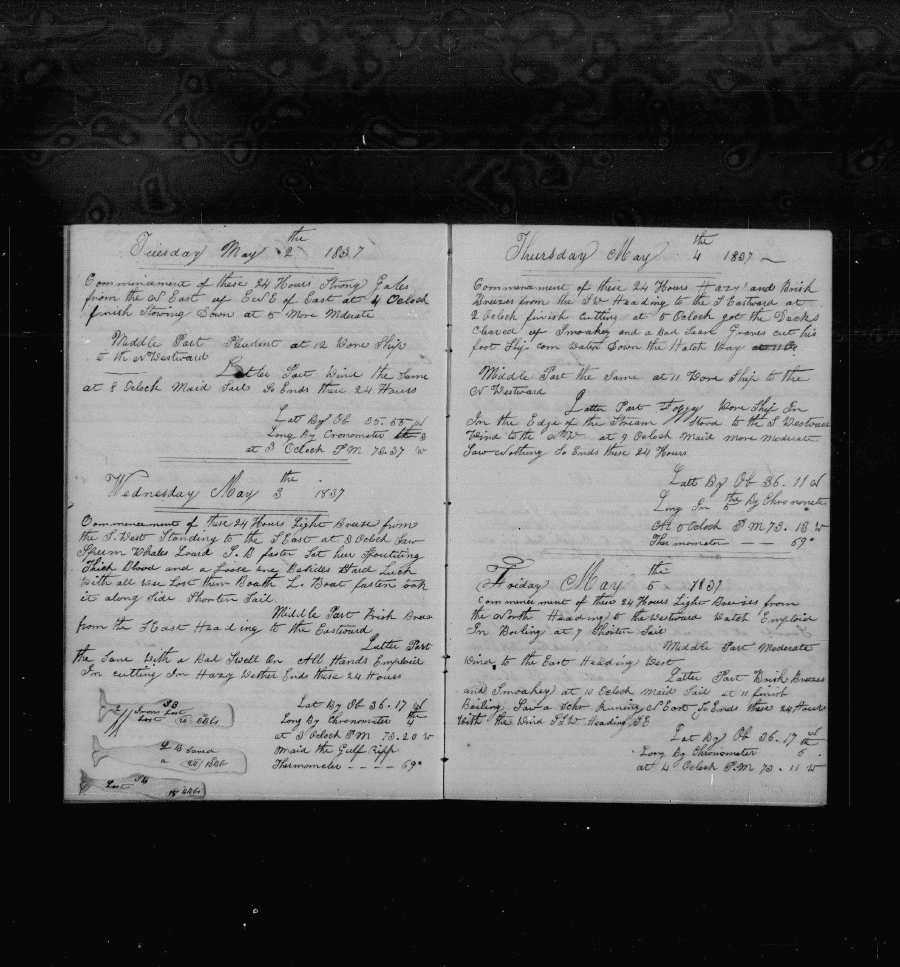 Tuesday May 2 the 1837
Commencment of these 24 Hours Strong Gales
from the N East up ENE of East at 4 Oclock
finish Stowing Down at 5 More Mderate
Middle Part Pleasent at 12 Wore Ship
to the N Westward
Latter Part Wind the Same
at 8 Oclock Maid Sail So Ends these 24 Hours
Lat By Ob 35.55 N
Long By Cronometer
at 3 Oclock P M 73.37 W
Wednesday May 3 the 1837
Commencement of these 24 Hours Light Breeze from
the S. West Standing to the S East at 3 Oclock Saw
Sperm Whales Loard S. B fasten Sat her Spouting
Thick Blood and a Loose one Besides Hard Luck
With all Wee Lost them Boath L. Boat fasten took
it along Side Shorten Sail
Middle Part Brish Breze
from the S East Heading to the Eastward
Latter Part
the Same With a Bad Swell On All Hands Emploid
In cutting In Hazy Wether Ends these 24 Hours
Lat By Ob 36.17 N
Long By Chronometer 4 the
at 3 Oclock P M 73.20 W
Maid the Gulf Ripp
Thermometer - - - - 69°
S B
2 Irons Lost
Lost 20 BBls
L B Saved
a 20 BBl
Lost S B
15 BBls
Thursday May 4 the 1837
Commencement of these 24 Hours Hazy and Brish
Breezes from the SW Heading to the S Eastward at
2 Oclock finish cutting at 5 Oclock got the Decks
cleared up Smoakey and a Bad Seas Graves cut his
foot Ship com Water Down the Hatch Way at 11 O
Middle Part the Same at 11 Wore Ship to the
N Westward
Latter Part Foggy Wore Ship In
In the Edge of the Stream Stood to the S Westward
Wind to the NW at 9 Oclock Maid more Moderate
Saw Nothing So Ends these 24 Hours
Latt By Ob 36.11 N
Long In 5 the By Chronometer
At 5 Oclock P M 73.18 W
Thermometer - - - 69°
Friday May 5 the 1837
Commencement of these 24 Hours Light Breezes from
the North Heading to the Westward Watch Emploid
In Boiling at 7 Shorten Sail
Middle Part Moderate
Wind to the East Heading West
Latter Part Brish Breezes
and Smoakey at 10 Oclock Maid Sail at 11 finish
Boiling Saw a Schr Runing N East So Ends these 24 Hours
With the Wind SSW Heading SE
Lat By Ob 36.17 N
Long By Chronometer 5 the
at 4 Oclock P.M 73.11 W